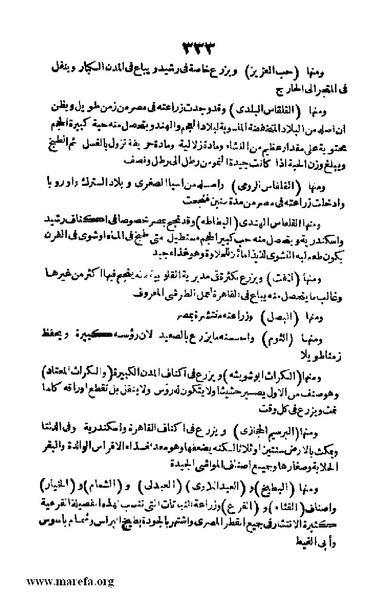 ٣٣٣
ومنها (حب العزيز) ويزرع خاصة في رشيد ويباع في المدن الكبار وينقل
في المتجر إلى الخارج
ومنها (القلقاس البلدى) وقد وجدت زراعته في مصر من زمن طويل ويظن
ان اصله من البلاد المنخفضة المنسوبة لبلاد العجم والهند ويتحصل منه حبة كبيرة الحجم
محتوية على مقدار عظيم من النشاء ومادة زلالية ومادة حريفة تزول بالغسل ثم الطبخ
ويبلغ وزن الحبة اذا كانت جيدة النمو من رطل الى رطل ونصف
ومنها (القلقاس الرومى) واصله من اسيا الصغرى وبلاد الترك واوروبا
وادخلت زراعته في مصر من مدة سنين فنجحت
ومنها (القلقاس الهندى) (البطاطه) وقد نجح بمصر خصوصا في اكناف رشيد
واسكندرية ويتحصل منه حب كبير الحجم مستطيل متى طبخ في الماء او شوى في الفرن
يكون طعم لبه القشوى لذيذا مائلا للحلاوة وهو غذاء جيد
ومنها (اللفت) ويزرع بكثرة في مديرية القليوبية لانه ينجح فيها اكثر من غيرها
وغالب ما يتحصل منه يباع في القاهرة لعمل الطرشى المعروف
ومنها (البصل) وزراعته منتشرة بمصر
ومنها (الثوم) واحسنه ما يزرع بالصعيد لان رؤسه كبيرة ويحفظ
زمنا طويلا
ومنها (الكراث ابو شويشه) ويزرع في اكناف المدن الكبيرة (والكراث المعتاد)
وهو صنف من الاول يصير حشيشا ولا يتكون له رؤس ولا ينقل بل تقطع اوراقه كلما
نمت ويزرع في كل وقت
ومنها (البرسيم الحجازى) ويزرع في اكناف القاهرة واسكندرية وفى الدلتا
ويمكث بالارض سنتين او ثلاثا لكنه يضعفها وهو معد لغذاء الافراس الوالدة والبقر
الحلابة وصغارها وجميع اصناف المواشى الجيدة
ومنها (البطيخ) و (العبداللاوى) (العبدلى) و (الشمام) و (الخيار)
واصناف (القثاء) و (القرع) وزراعة النباتات التى تنسب لهذه الفصيلة القرعية
كثيرة الانتشار في جميع القطر المصرى واشتهر بالجودة بطيخ البراس وشمام باسوس
وأبى الغيط
www.marefa.org